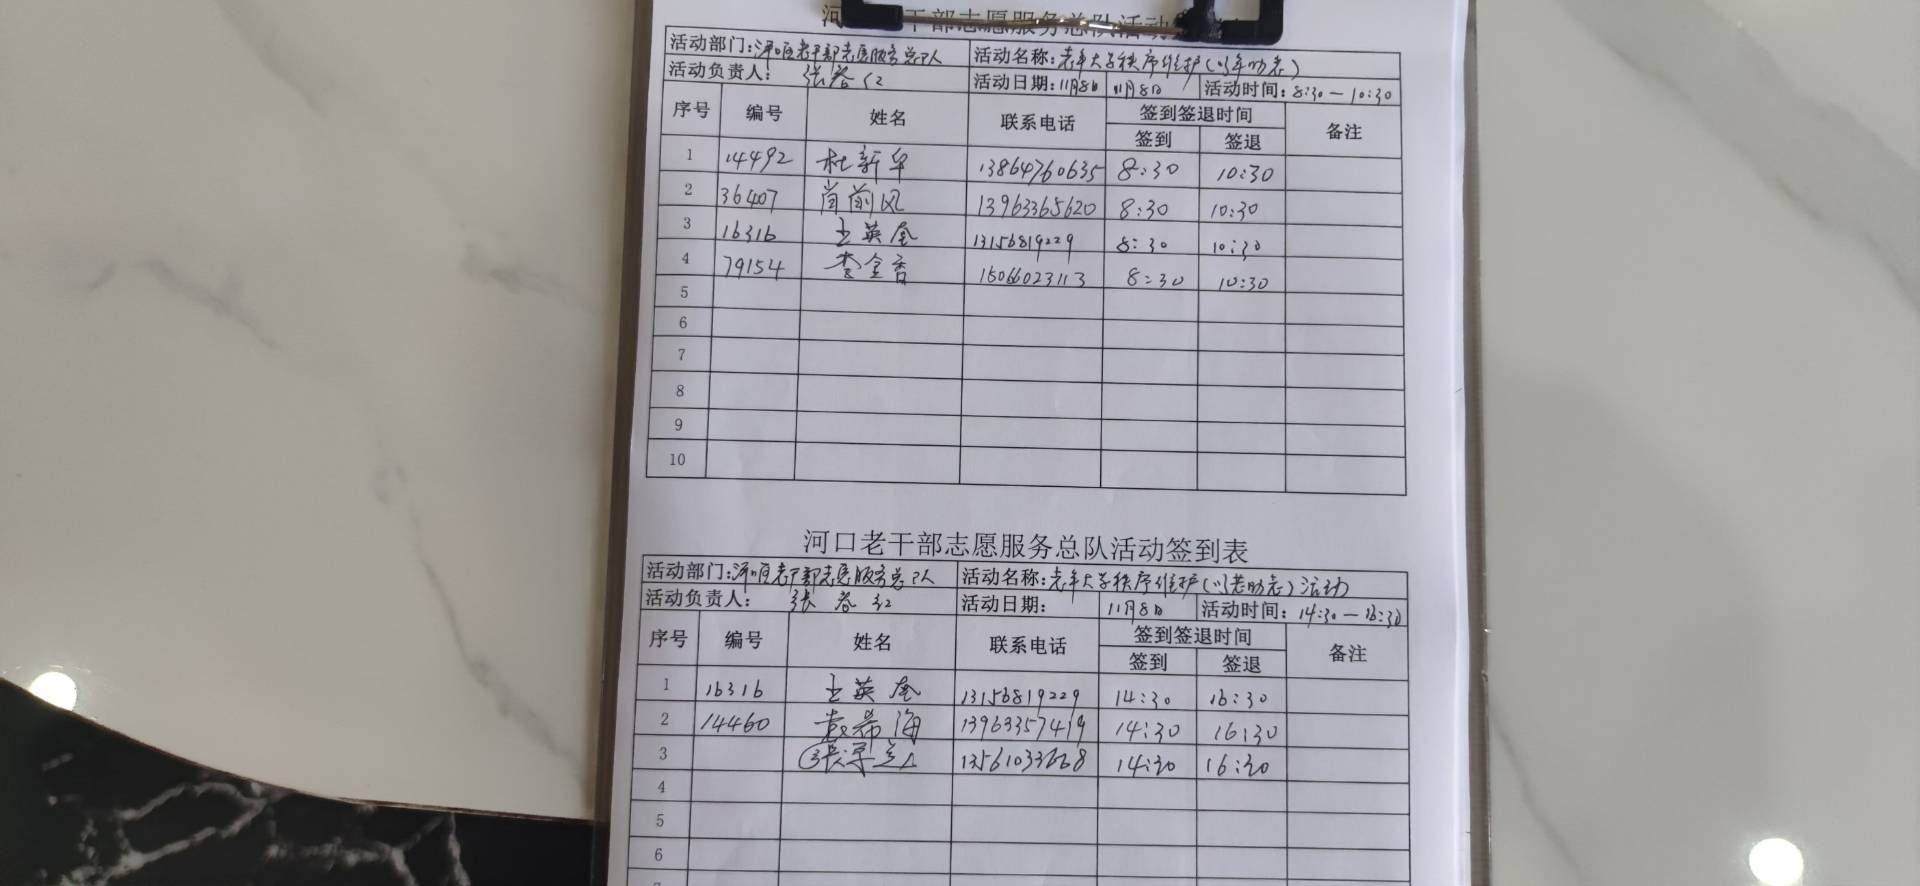 河口老干部志愿服务总队活动签
活动部门:河口区老干部志愿服务总队 活动名称:老年大学秩序维护(以老助老)
活动负责人: 张春红 活动日期: 11月8日 11月8日 活动时间: 8:30—10:30
序号 编号 姓名 联系电话 签到签退时间 备注
签到 签退
1 14492 杜新华 13864760635 8:30 10:30
2 36407 13963365620 8:30 10:30
3 16316 王英奎 13156819229 8:30 10:30
4 79154 李金香 15066023113 8:30 10:30
5
6
7
8
9
10
河口老干部志愿服务总队活动签到表
活动部门:河口区老干部志愿服务总队 活动名称:老年大学秩序维护(以老助老)活动
活动负责人: 张春红 活动日期: 11月8日 活动时间: 14:30—16:30
序号 编号 姓名 联系电话 签到签退时间 备注
签到 签退
1 16316 王英奎 13156819229 14:30 16:30
2 14460 袁希海 13963357419 14:30 16:30
3 13561033668 14:30 16:30
4
5
6